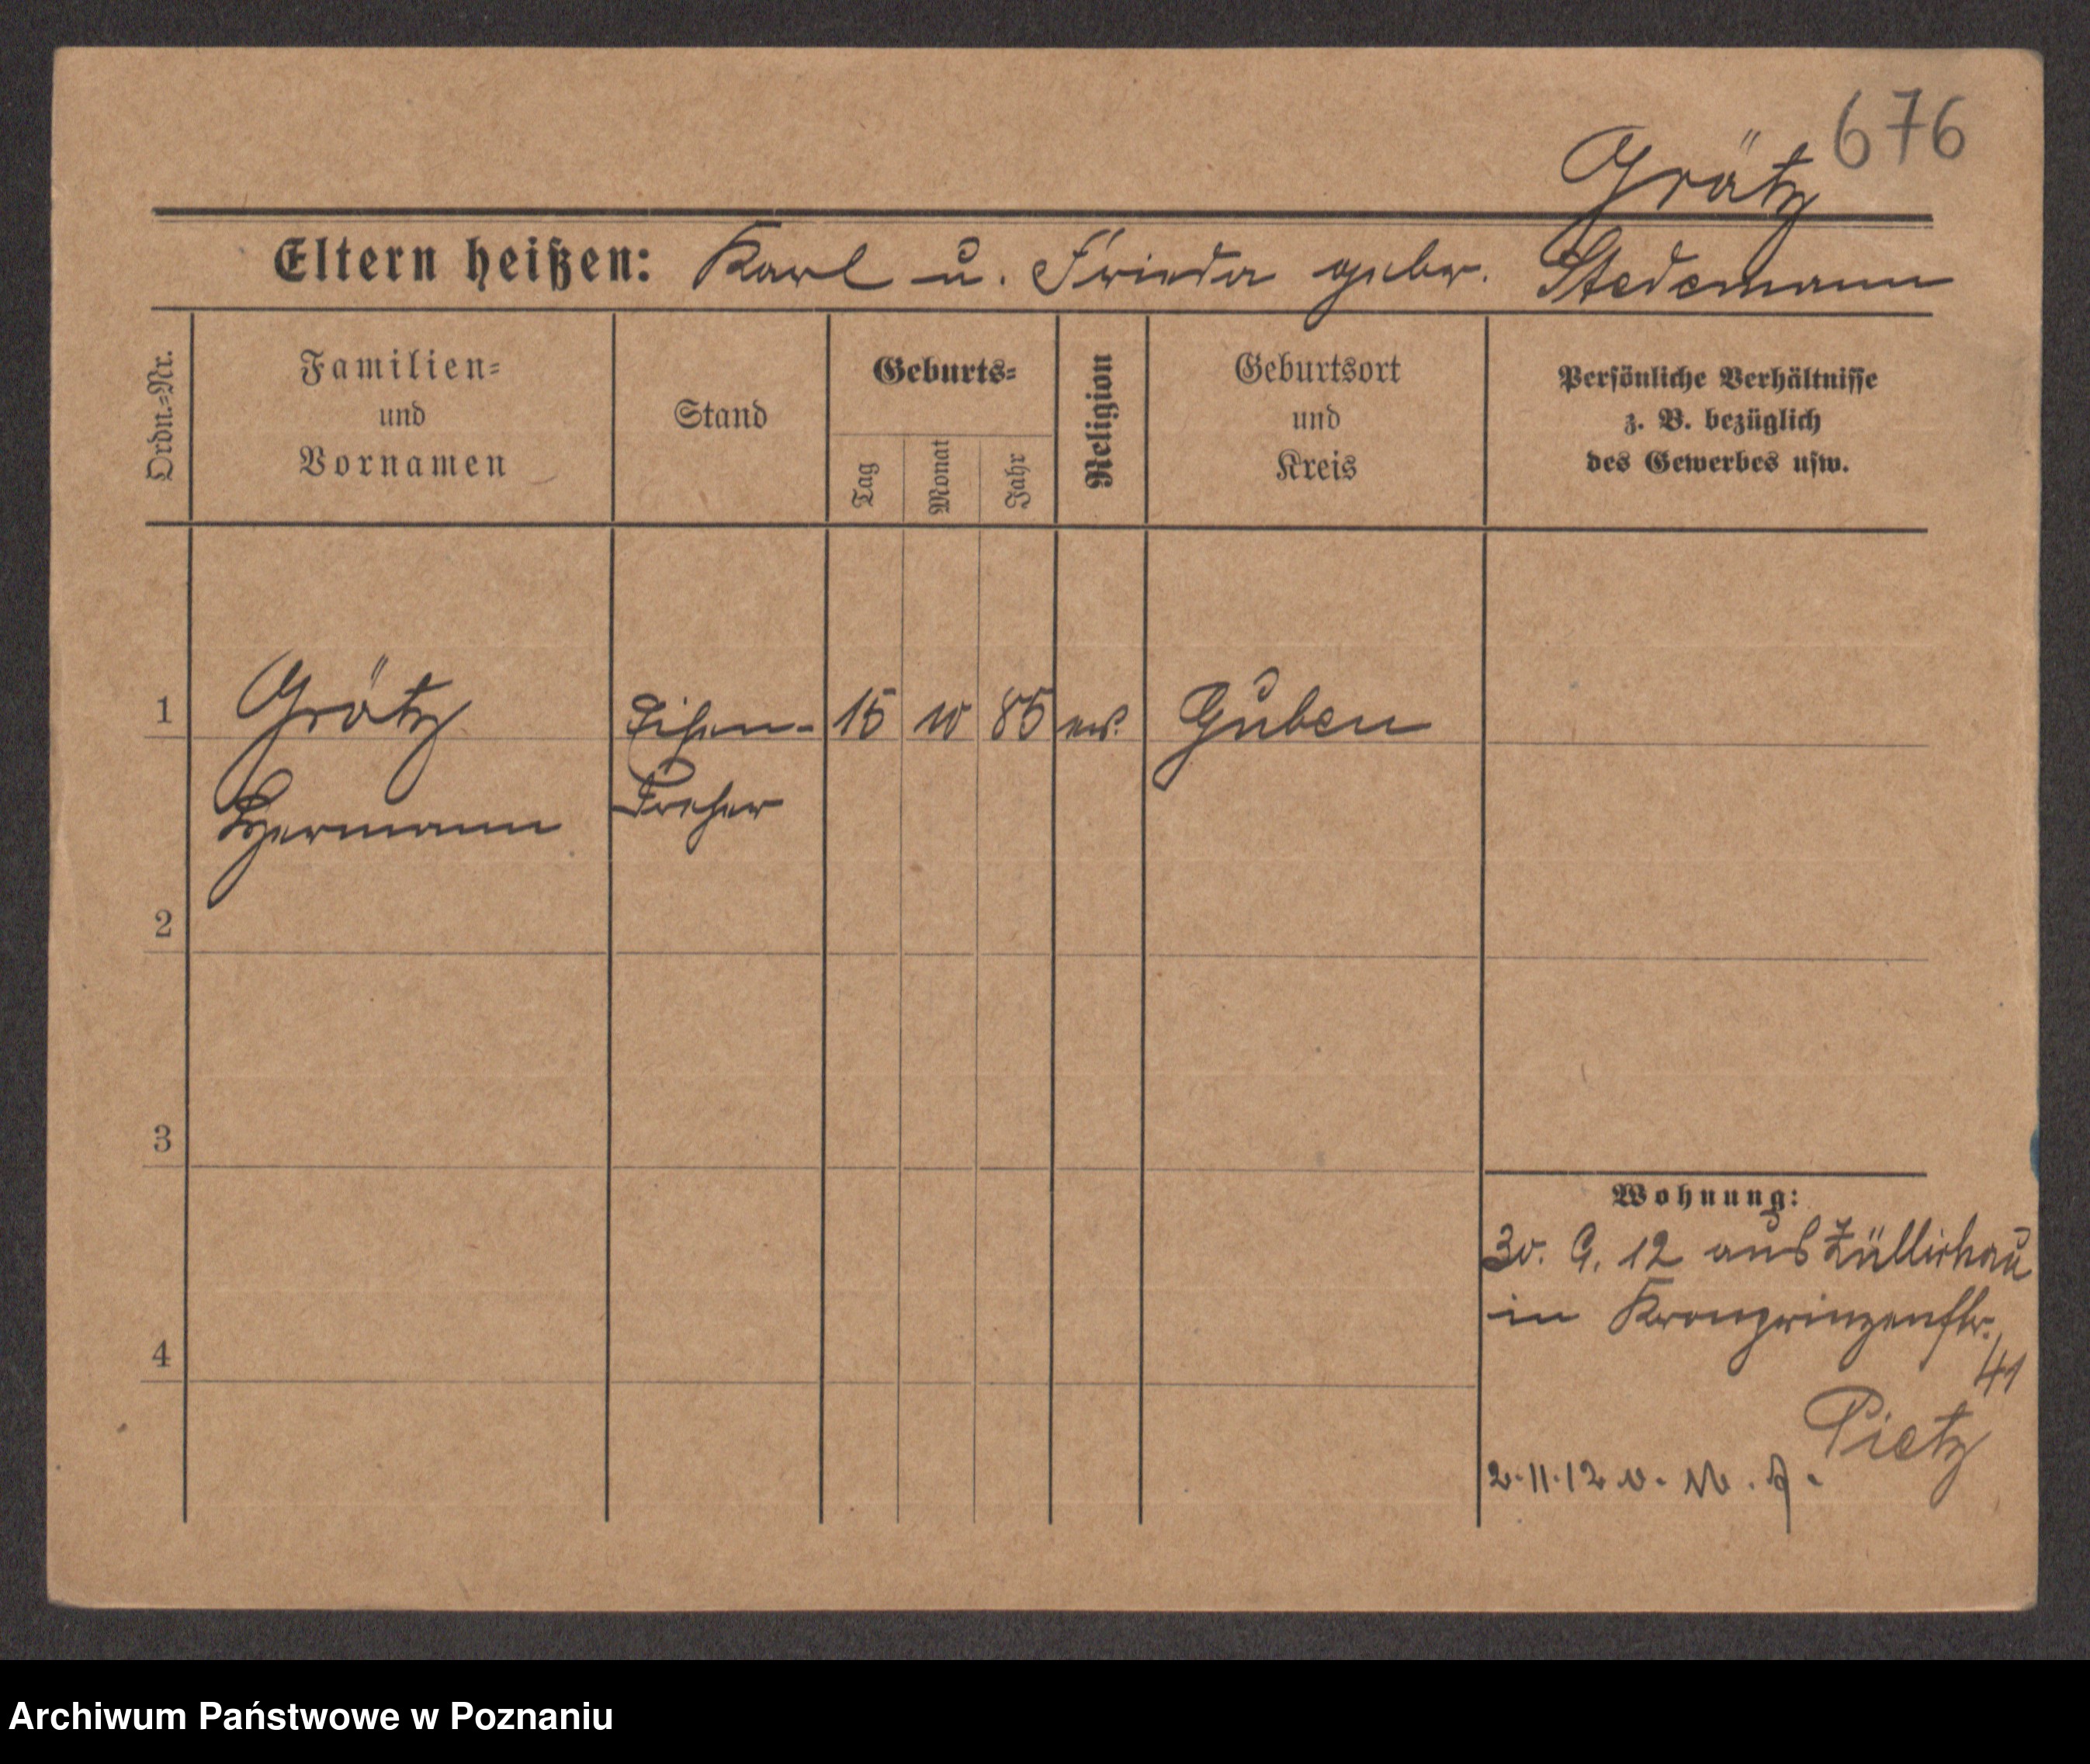 676
Grätz
Eltern heißen: Karl u. Frieda gebor. Stedemann
Ordn.=Nr.
Familien=
und
Vornamen
Stand
Geburts=
Tag
Monat
Jahr
Religion
Geburtsort
und
Kreis
Persönliche Verhältnisse
z. B. bezüglich
des Gewerbes usw.
1 Grätz Eisen- 15 10 85 ev. Guben
Hermann Dreher
2
3
4
Wohnung:
30. 9. 12 aus Züllichau
in Kronprinzenstr.
41
Pietz
2.11.12 v.
Archiwum Państwowe w Poznaniu